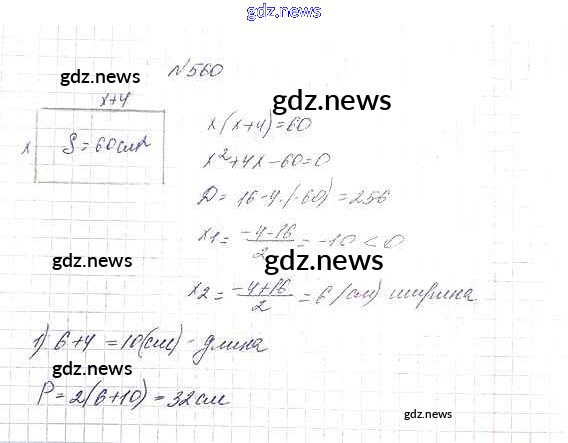 gdz.news
№560
gdz.news
gdz.news
x+4
x
S = 60 см²
x(x+4)=60
x²+4x-60=0
D = 16-4·(-60) = 256
gdz.news
x₁ = (-4-16)/2 = -10 < 0
gdz.news
gdz.news
x₂ = (-4+16)/2 = 6 (см) ширина
1) 6+4 = 10(см) - длина
gdz.news
P = 2(6+10) = 32 см
gdz.news